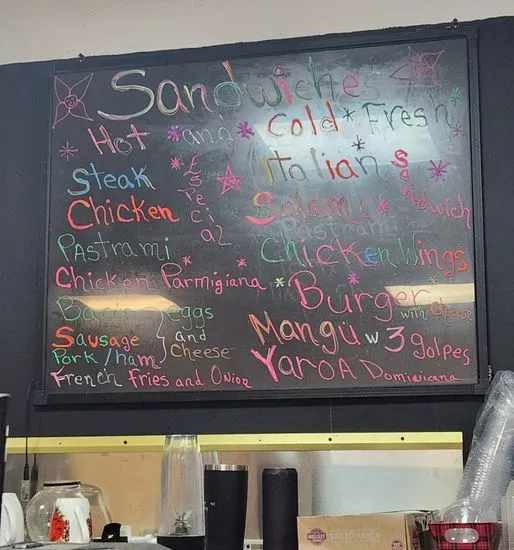 Sandwiches
Hot and Cold * Fresh
Steak
Chicken
Especial
Pastrami
Chicken Parmigiana
Bacon eggs
Sausage and
Pork / ham Cheese
French fries and Onion
Italian Sandwich
Salami
Pastrami
Chicken Wings
Burger
with cheese
Mangú w 3 golpes
Yaroa Dominicana